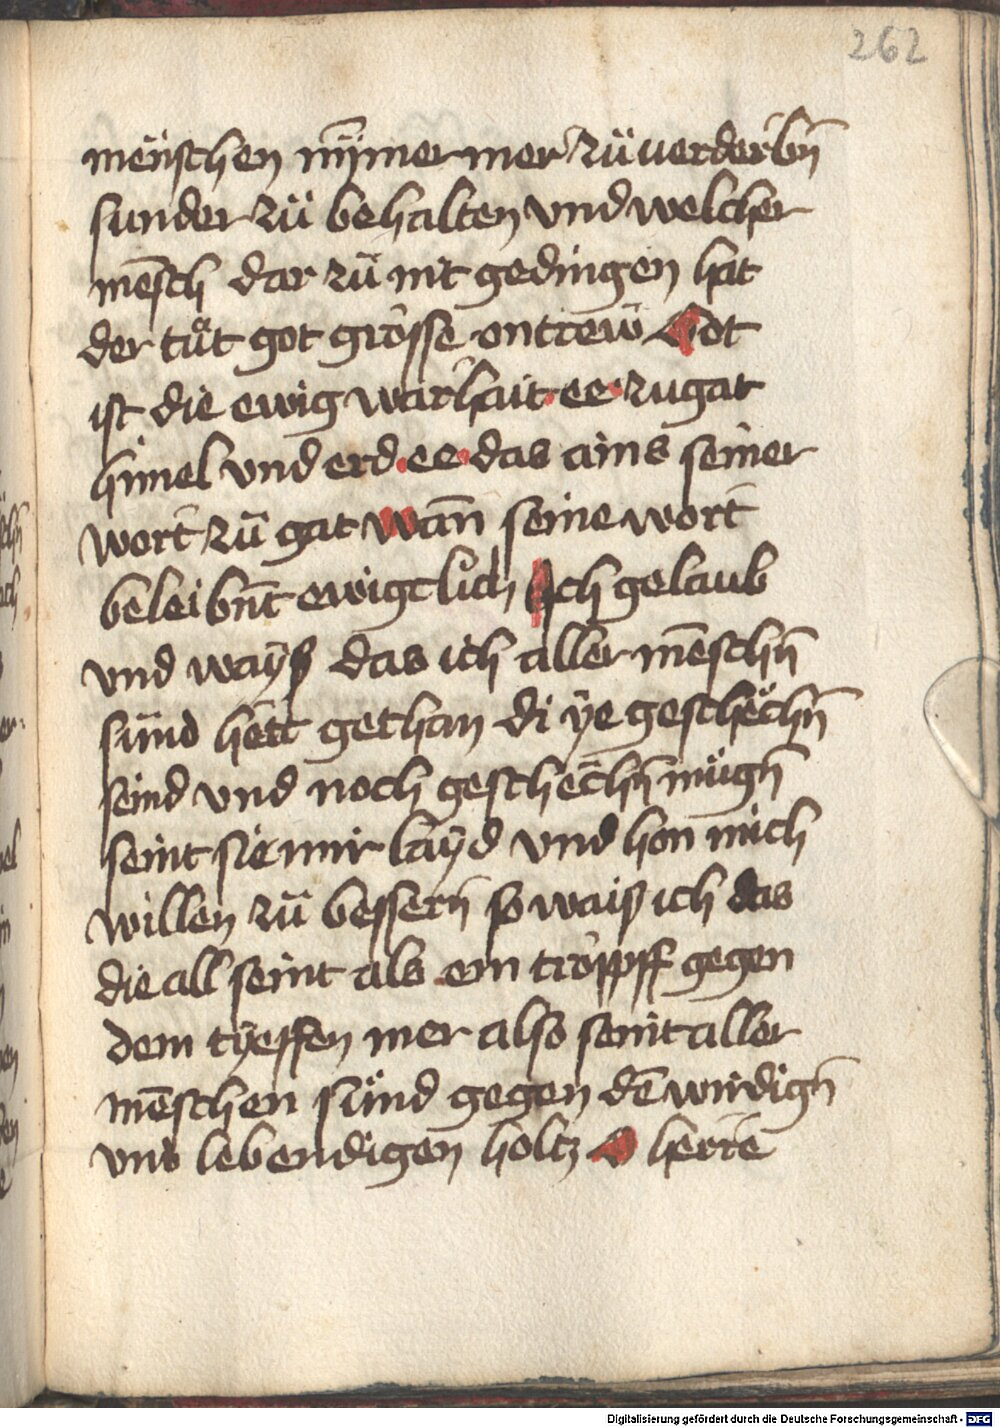 262
mënschen nȳmer mer zü verderbn̄
sunder zü behalten vnd welcher
mēsch dar zü nit gedingen hat
der tůt got grösse ontrew Got
ist die ewig warhait ee zugat
himel vnd erd ee das ains seiner
wort zü gat wān seine wort
beleibnt ewigclich Ich gelaub
vnd wayß das ich aller mēschn̄
sünd hett gethan di ye geschëchn̄
seind vnd noch geschēchn̄ mügn̄
seint sie mir layd vnd hon mich
willen zü bessern so waiß ich das
die all seint als ein tröppff gegen
dem tyeffen mer also seint aller
mēschen sünd gegen dē wirdign̄
vnd lebendigen holtz O herre
Digitalisierung gefördert durch die Deutsche Forschungsgemeinschaft - DFG